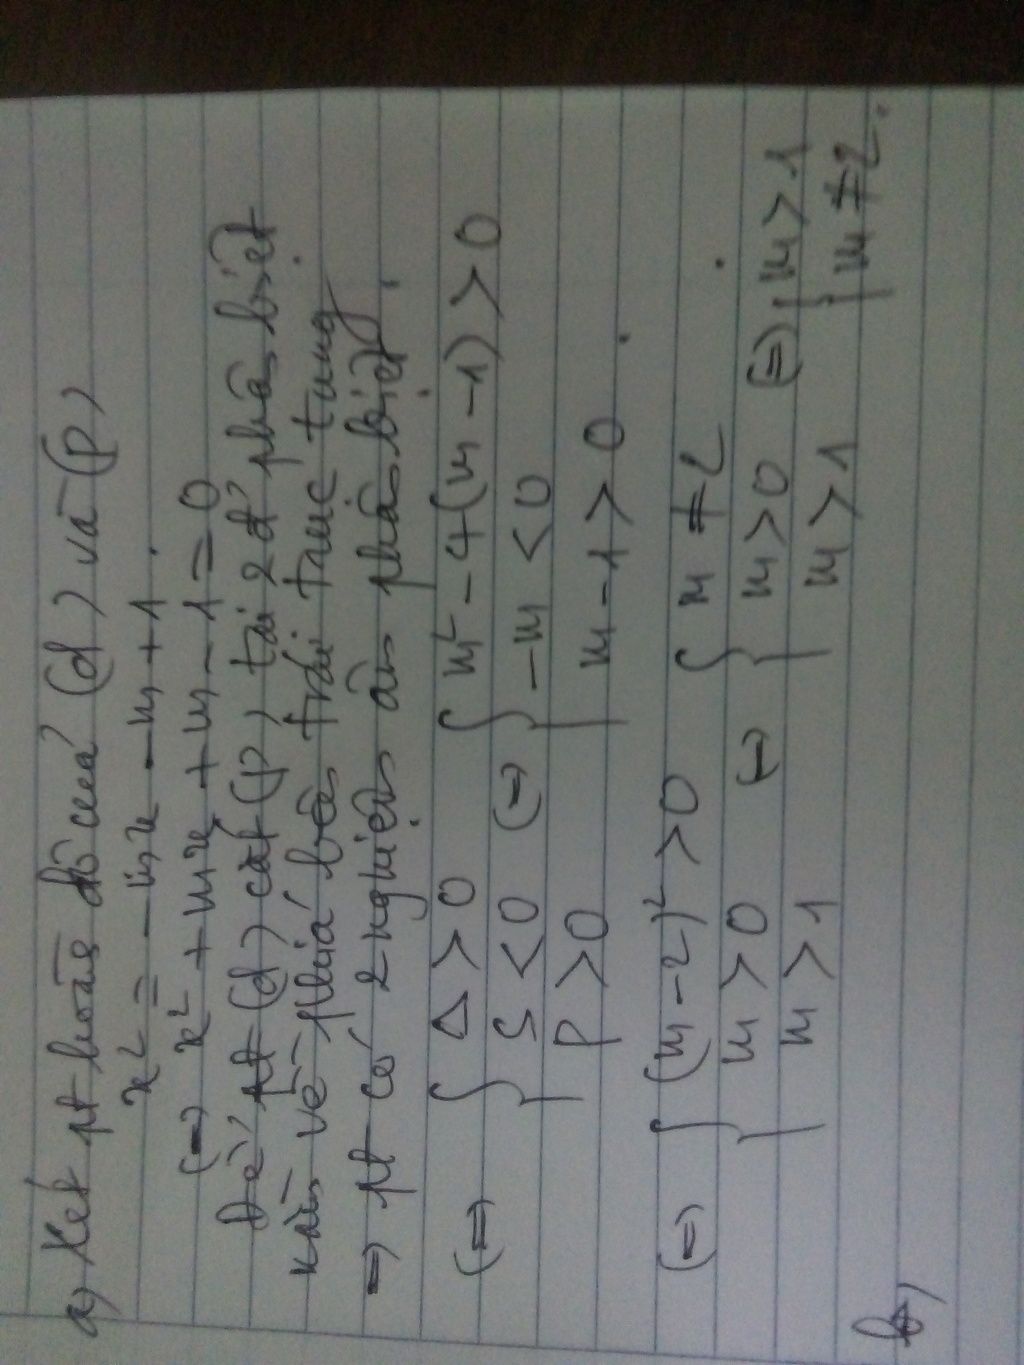 a) Xét pt hoành độ của (d) và (P)
x² = -mx - m + 1.
(=) x² + mx + m - 1 = 0
Để pt (d) cắt (P) tại 2 đ' phân biệt
nằm về phía bên trái trục tung
=> pt có 2 nghiệm âm phân biệt.
(=) { Δ > 0 S < 0 P > 0 (=) { m² - 4(m - 1) > 0 -m < 0 m - 1 > 0.
(=) { (m - 2)² > 0 m > 0 m > 1 (=) { m ≠ 2 m > 0 m > 1 (=) { m > 1 m ≠ 2.
b)